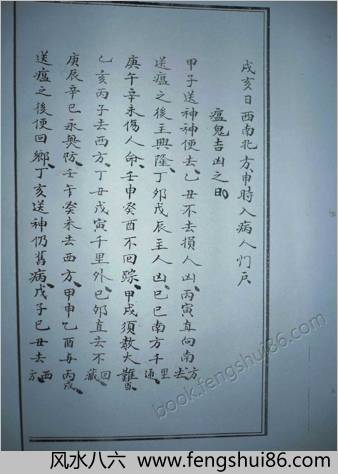 戌亥日西南北方申時入病人門戶
瘟鬼吉凶之日
甲子送神神便去乙丑不去損人凶丙寅直向南方去
送瘟之後主興隆丁卯戊辰主人凶己巳南方千里通
庚午辛未傷人命壬申癸酉不回踪甲戌須教大難當
乙亥丙子去西方丁丑戊寅千里外己卯直去不回藏
庚辰辛巳永興防壬午癸未去西方甲申乙酉每丙戌
送瘟之後便回鄉丁亥送神仍舊病戊子己丑去西方
book.fengshui86.com
风水八六－www.fengshui86.com